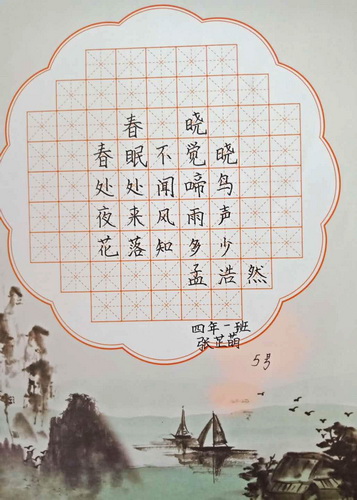 春晓
春眠不觉晓
处处闻啼鸟
夜来风雨声
花落知多少
孟浩然
四年一班
张芷萌
5号